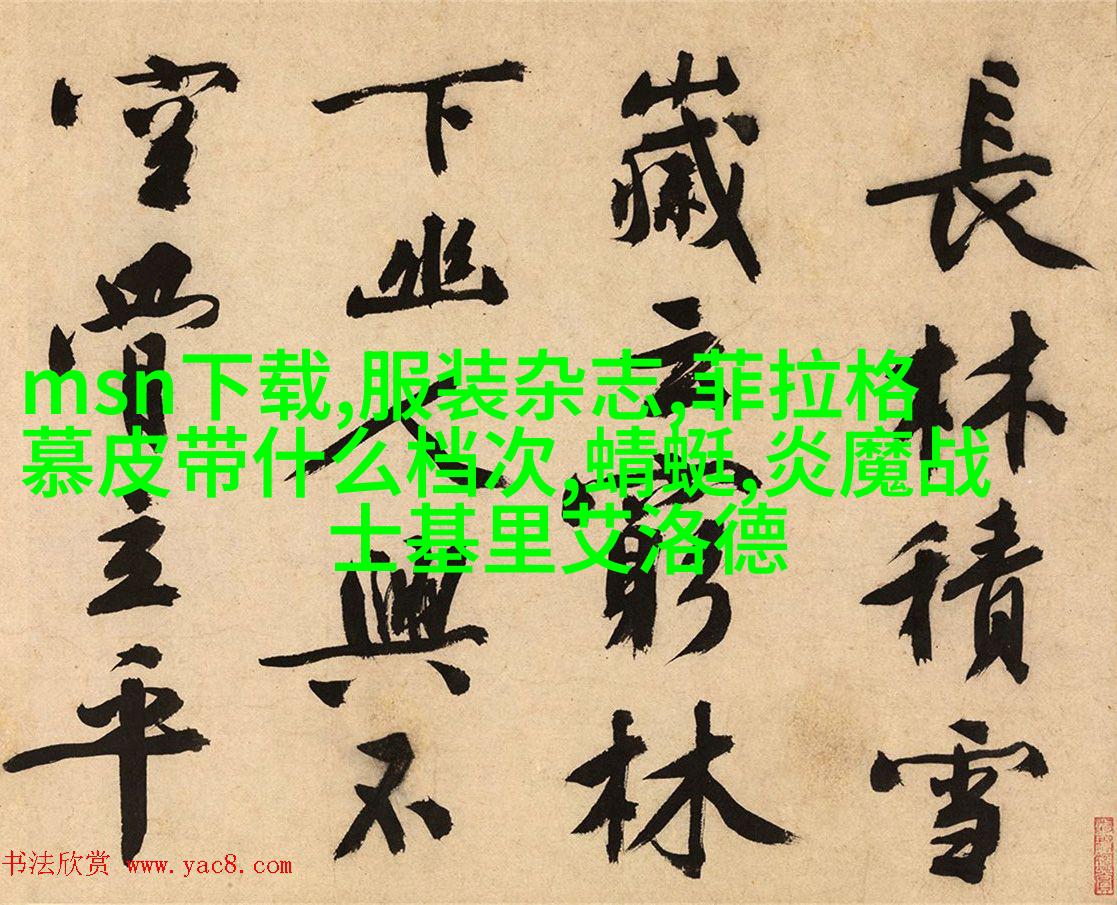 長林積雪
歲云窮林
下幽人興不
空立平
msn下载,服装杂志,菲拉格
慕皮带什么档次,蜻蜓,炎魔战
士基里艾洛德
书法欣赏 www.yac8.com